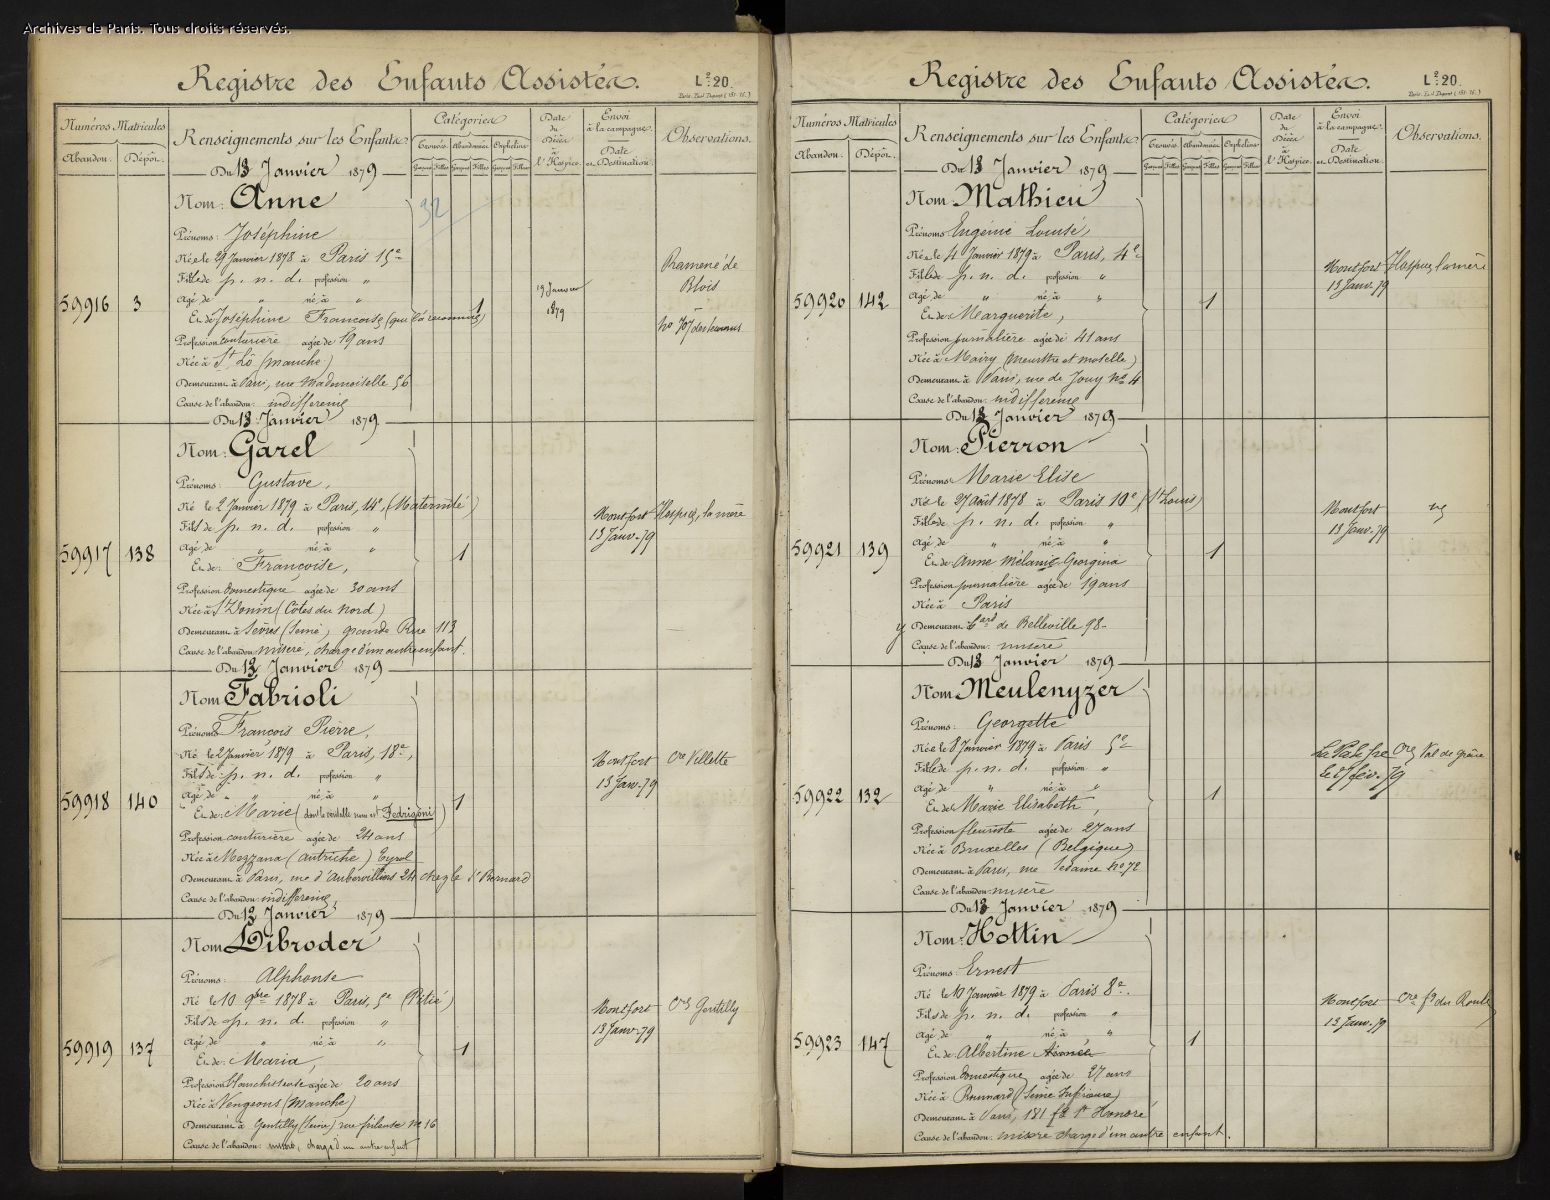 Archives de Paris. Tous droits réservés.
Registre des Enfants Assistés.
L.e 20.
Numéros Matricules
Abandon. Dépôt.
Renseignements sur les Enfants
Catégories
Trouvés Abandonnés Orphelins
Garçons Filles Garçons Filles Garçons Filles
Date du Décès à l'Hospice.
Envoi à la campagne. Date et Destination.
Observations.
Du 13 Janvier 1879
59916 3
Nom: Anne
32
Prénoms: Joséphine
Née le 29 Janvier 1878 à Paris 15e
Fille de p. n. d. profession "
Agé de " né à "
Et de Joséphine Françoise (qui l'a reconnue)
Profession couturière agée de 19 ans
Née à St Lô (manche)
Demeurant à Paris, rue Mademoiselle 56
Cause de l'abandon: indifférence
1
19 Janvier 1879
Ramené de Blois
no 707 des
Du 13 Janvier 1879
59917 138
Nom: Garel
Prénoms: Gustave,
Né le 2 Janvier 1879 à Paris, 14e, (Maternité)
Fils de p. n. d. profession "
Agé de " né à "
Et de: Françoise,
Profession domestique agée de 30 ans
Née à St Donin (Côtes du nord)
Demeurant à Sèvres (Seine) grande Rue 113
Cause de l'abandon: misère, charge d'un autre enfant.
1
Montfort 13 Janv. 79
Hospice, la mère
Du 13 Janvier 1879
59918 140
Nom Fabrioli
Prénoms François Pierre,
Né le 2 Janvier 1879 à Paris, 18e,
Fils de p. n. d. profession "
Agé de " né à "
Et de: Marie (dont le véritable nom est Fedrigoni)
Profession couturière agée de 24 ans
Née à Mezzana (Autriche) Tyrol
Demeurant à Paris, rue d'Aubervilliers 24 chez le Sr Bernard
Cause de l'abandon: indifférence,
1
Montfort 13 Janv. 79
Cre Villette
Du 13 Janvier 1879
59919 137
Nom Libroder
Prénoms: Alphonse
Né le 10 9bre 1878 à Paris, 5e (Pitié)
Fils de p. n. d. profession "
Agé de " né à "
Et de: Maria,
Profession blanchisseuse agée de 20 ans
Née à Vengeons (Manche)
Demeurant à Gentilly (Seine) rue no 16
Cause de l'abandon: misère, charge d'un autre enfant
1
Montfort 13 Janv. 79
Cre Gentilly
Registre des Enfants Assistés.
L.e 20.
Numéros Matricules
Abandon. Dépôt.
Renseignements sur les Enfants
Catégories
Trouvés Abandonnés Orphelins
Garçons Filles Garçons Filles Garçons Filles
Date du Décès à l'Hospice.
Envoi à la campagne. Date et Destination.
Observations.
Du 13 Janvier 1879
59920 142
Nom: Mathieu
Prénoms Eugénie Louise,
Née le 4 Janvier 1879 à Paris, 4e
Fille de p. n. d. profession "
Agé de " né à "
Et de Marguerite,
Profession journalière agée de 41 ans
Née à Mairy (Meurthe et moselle)
Demeurant à Paris, rue de Jouy no 4
Cause de l'abandon: indifférence
1
Montfort 13 Janv. 79
Hospice, la mère
Du 13 Janvier 1879
59921 139
Nom: Pierron
Prénoms Marie Elise
Née le 27 août 1878 à Paris 10e (St Louis)
Fille de p. n. d. profession "
Agé de " né à "
Et de Anne Mélanie Georgina
Profession journalière agée de 19 ans
Née à Paris
Demeurant bard de Belleville 98
Cause de l'abandon: misère
1
Montfort 13 Janv. 79
Du 13 Janvier 1879
59922 132
Nom Meulenyzer
Prénoms: Georgette
Née le 8 Janvier 1879 à Paris 5e
Fille de p. n. d. profession "
Agé de " né à "
Et de Marie Elisabeth,
Profession fleuriste agée de 27 ans
Née à Bruxelles (Belgique)
Demeurant à Paris, rue Sedaine no 72
Cause de l'abandon: misère
1
le 27 fév. 79
Cre Val de grâce
Du 13 Janvier 1879
59923 147
Nom: Hottin
Prénoms: Ernest
Né le 10 Janvier 1879 à Paris 8e.
Fils de p. n. d. profession "
Agé de " né à "
Et de: Albertine Aimée
Profession domestique agée de 27 ans
Née à (Seine Inférieure)
Demeurant à Paris, 181 fg St Honoré
Cause de l'abandon: misère charge d'un autre enfant.
1
Montfort 13 Janv. 79
Cre fg du Roule